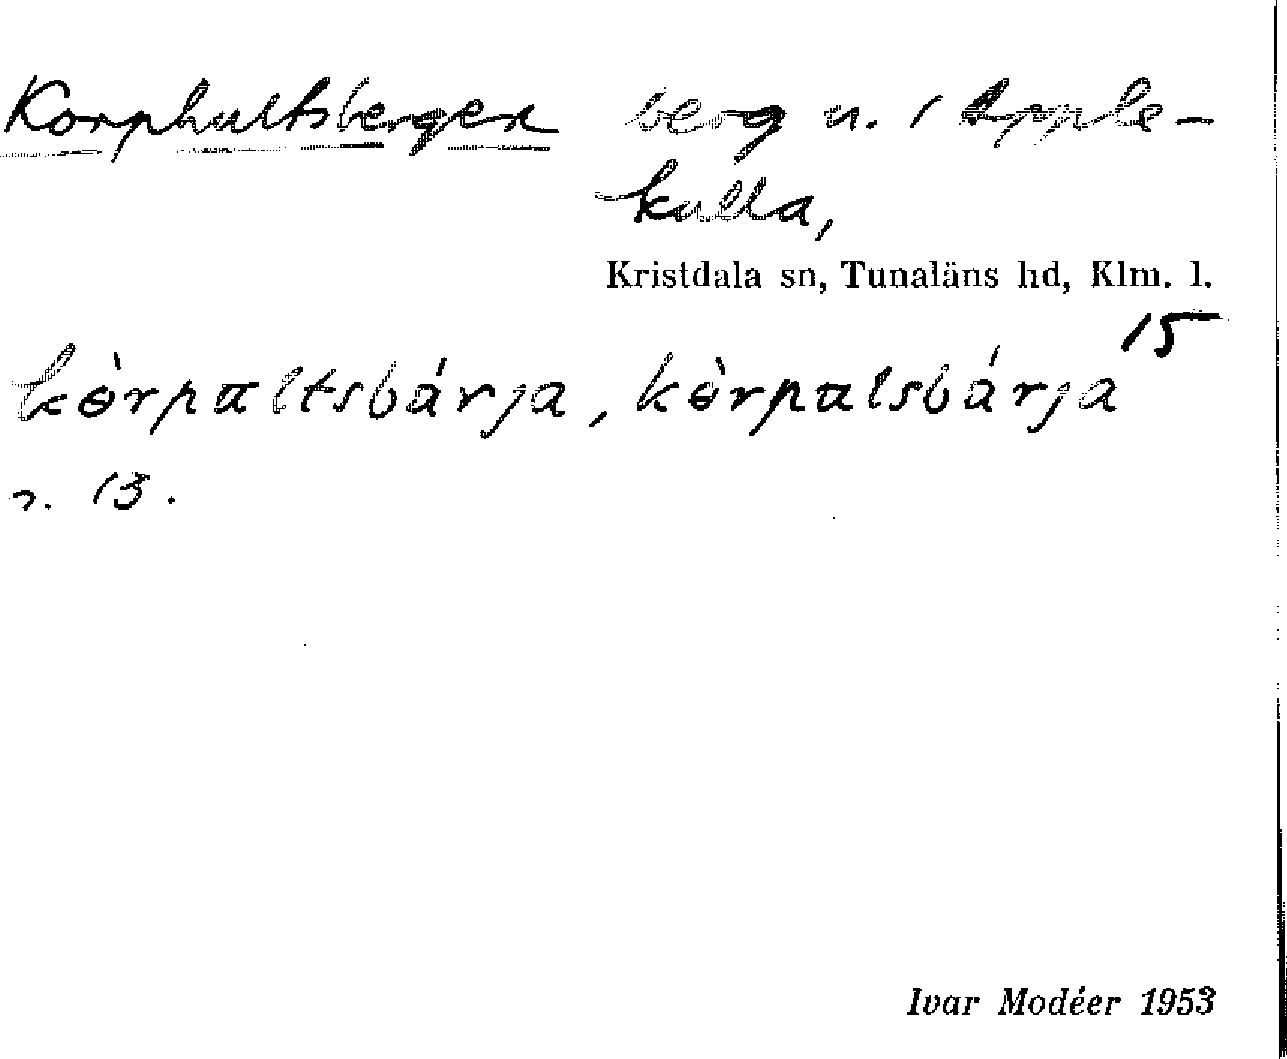 Korphultsbergen berg n. i Apple-
kulla,
Kristdala sn, Tunaläns hd, Klm. l.
15
kɵ̀rpaltsbárja, kɵ̀rpalsbárja
r. 13.
Ivar Modéer 1953